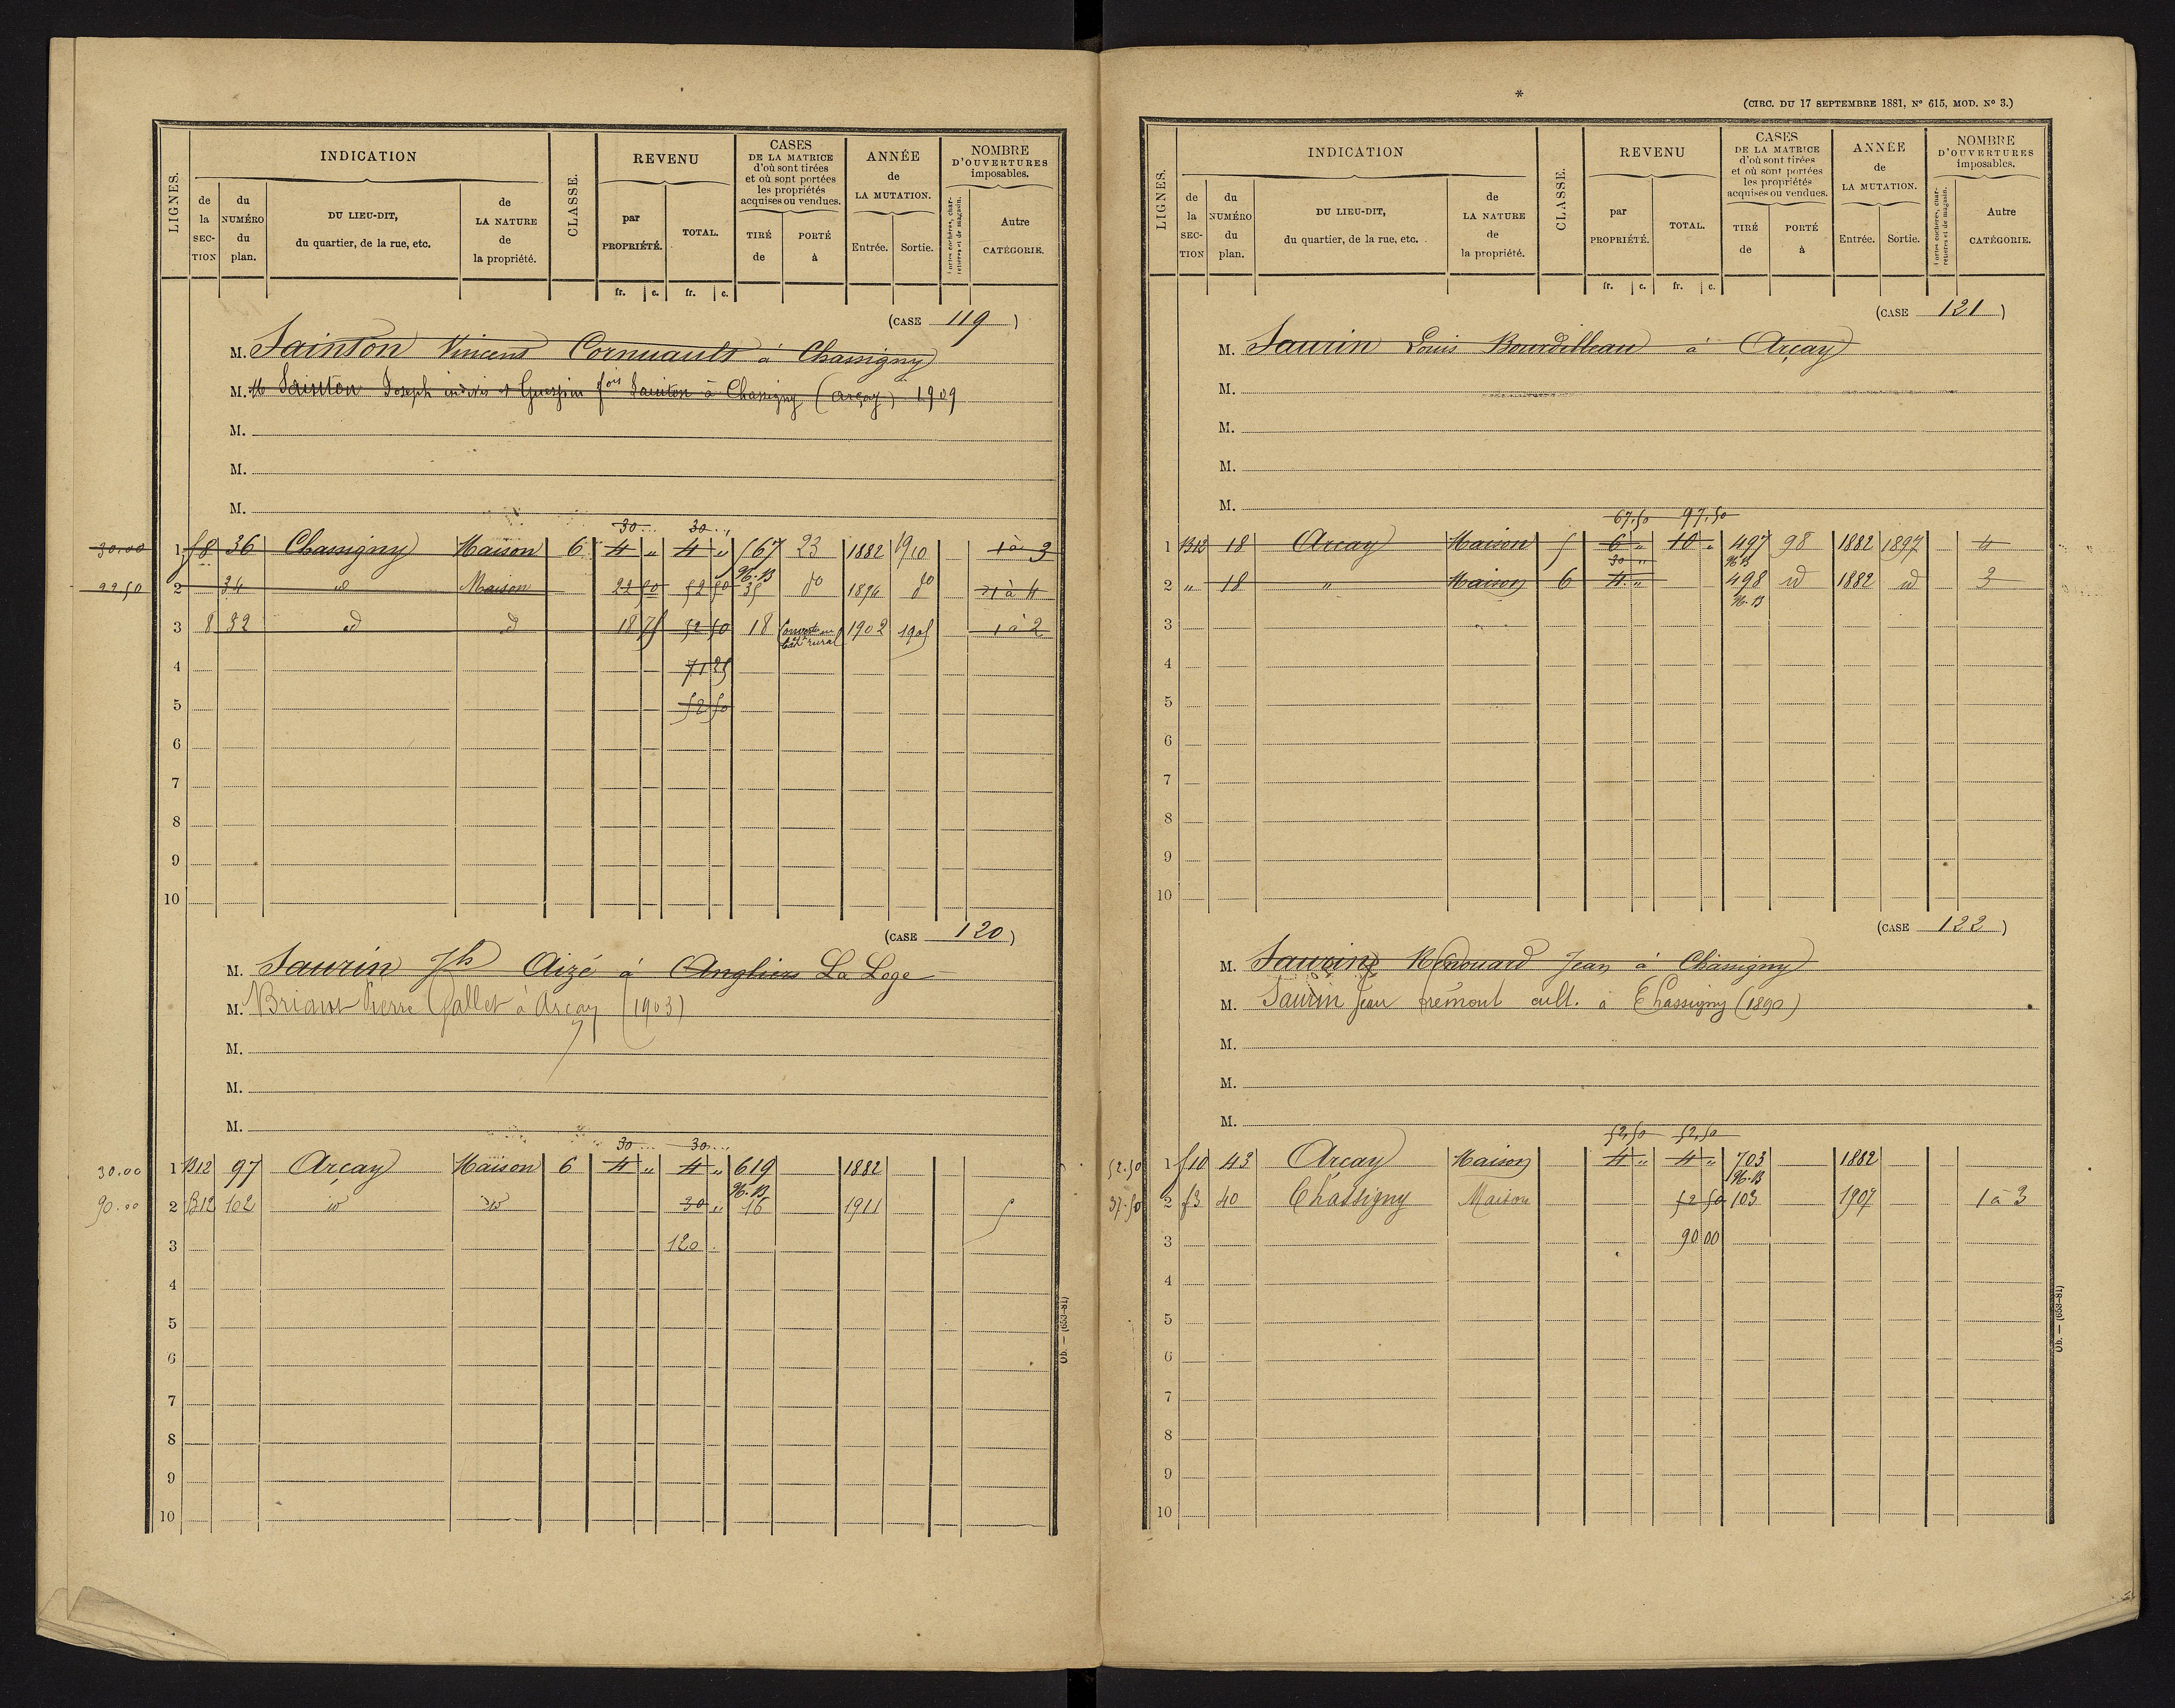 LIGNES.
INDICATION
CLASSE.
REVENU
CASES
DE LA MATRICE
d'où sont tirées
et où sont portées
les propriétés
acquises ou vendues.
ANNÉE
de
LA MUTATION.
NOMBRE
D'OUVERTURES
imposables.
de la SECTION
du NUMÉRO du plan.
DU LIEU-DIT,
du quartier, de la rue, etc.
de LA NATURE de la propriété.
par PROPRIÉTÉ.
TOTAL.
TIRÉ de
PORTÉ à
Entrée.
Sortie.
Portes cochères, charretières et de magasin.
Autre CATÉGORIE.
fr. c. fr. c.
(CASE 119)
M. Sainton Vincent Cornuault à Chassigny
M. Sainton Joseph indivis et fois Sainton à Chassigny (arçay) 1909
M.
M.
M.
30 30
30.00 1 f8 36 Chassigny Maison 6 4 " 4 " 567 23 1882 1910 1 à 3
N.B
22.50 2 34 id Maison 22 50 52 50 35 do 1894 do 1 à 4
3 8 32 id id 18 75 52 50 18 rural 1902 1905 1 à 2
4 71 25
5 52 50
6
7
8
9
10
(CASE 120)
M. Saurin Jh Aizé à Angliers La Loge
M. Briant Pierre Gallet à Arçay (1903)
M.
M.
M.
30 30
30.00 1 B12 97 Arçay Maison 6 4 " 4 " 619 1882
N.B
90.00 2 B12 102 id id 30 " 16 1911 5
3 120
4
5
6
7
8
9
10
Ob. — (653-81)
*
(CIRC. DU 17 SEPTEMBRE 1881, N° 615, MOD. N° 3.)
LIGNES.
INDICATION
CLASSE.
REVENU
CASES
DE LA MATRICE
d'où sont tirées
et où sont portées
les propriétés
acquises ou vendues.
ANNÉE
de
LA MUTATION.
NOMBRE
D'OUVERTURES
imposables.
de la SECTION
du NUMÉRO du plan.
DU LIEU-DIT,
du quartier, de la rue, etc.
de LA NATURE de la propriété.
par PROPRIÉTÉ.
TOTAL.
TIRÉ de
PORTÉ à
Entrée.
Sortie.
Portes cochères, charretières et de magasin.
Autre CATÉGORIE.
fr. c. fr. c.
(CASE 121)
M. Saurin Louis Bourdilleau à Arçay
M.
M.
M.
M.
67,50 97,50
1 B12 18 Arcay Maison 5 6 " 10 " 497 98 1882 1897 4
30 " N.B
2 " 18 " Maison 6 4 " 498 id 1882 id 3
N.B
3
4
5
6
7
8
9
10
(CASE 122)
M. Saurin Renouard Jean à Chassigny
M. Saurin Jean frémont cult. à Chassigny (1890)
M.
M.
M.
52,50 52,50
52.50 1 f10 43 Arcay Maison 4 " 4 " 703 1882
N.B
37.50 2 f3 40 Chassigny Maison 52 50 103 1907 1 à 3
3 90 00
4
5
6
7
8
9
10
Ob. — (653-81)